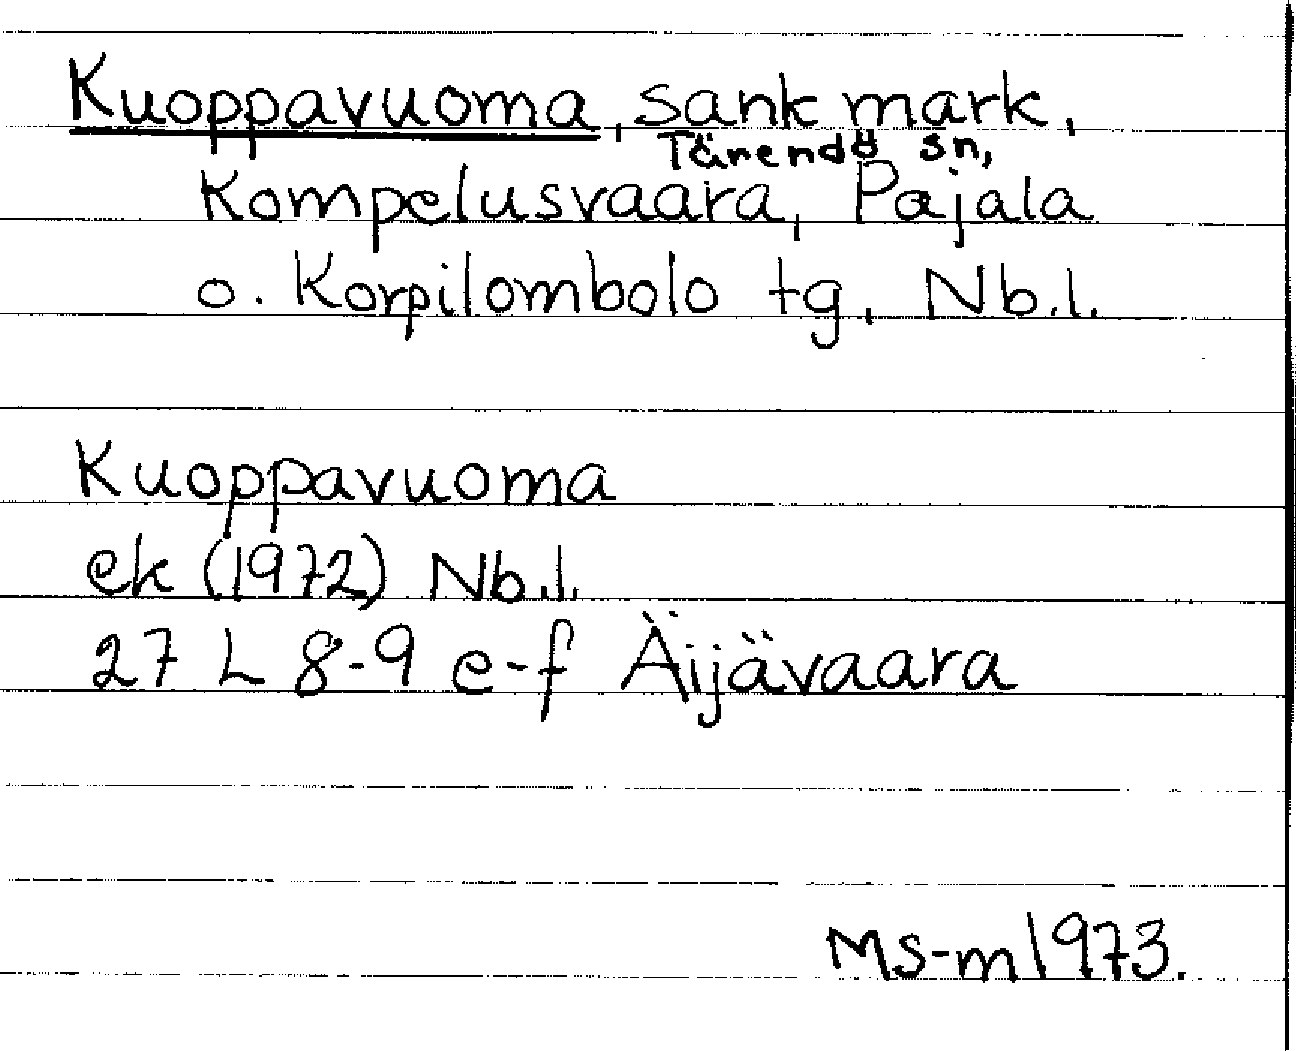 Kuoppavuoma, sank mark,
Tärendö sn,
Kompelusvaara, Pajala
o. Korpilombolo tg, Nb.l.
Kuoppavuoma
ek (1972) Nb.l.
27 L 8-9 e-f Äijävaara
Ms-m 1973.